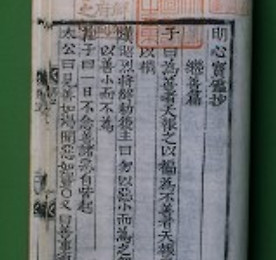 明心寶鑑抄
繼善篇
子曰為善者天報之以福為不善者天報
之以禍
漢昭烈將終勑後主曰勿以惡小而為之勿
以善小而不為
莊子曰一日不念善諸惡自皆起
太公曰見善如渴聞惡如聾又曰善事須